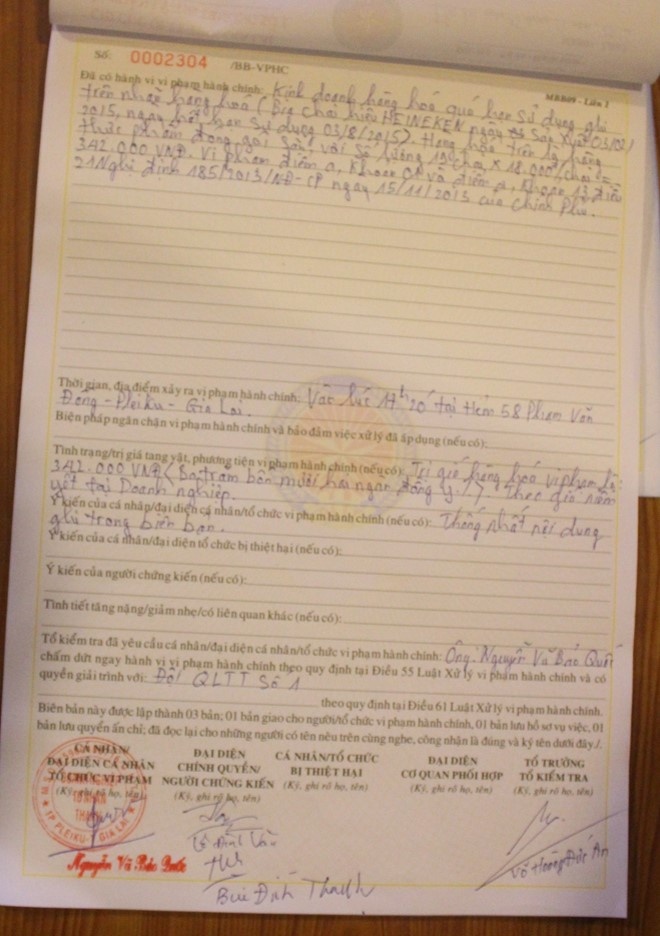 Số: 0002304 /BB-VPHC
MBB09 - Liên 1
Đã có hành vi vi phạm hành chính: Kinh doanh hàng hoá quá hạn sử dụng ghi
trên nhãn hàng hoá (Bia chai hiệu HEINEKEN ngày Sản Xuất 03/02/
2015, ngày hết hạn sử dụng 03/8/2015). Hàng hóa trên là hàng
thực phẩm đóng gói sẵn với số lượng 19 chai x 18.000/chai =
342.000 VNĐ. Vi phạm điểm a, Khoản 01 và điểm a, Khoản 13 điều
21 Nghị định 185/2013/NĐ-CP ngày 15/11/2013 của Chính Phủ.
Thời gian, địa điểm xảy ra vi phạm hành chính: Vào lúc 17h20' tại Hẻm 58 Phạm Văn
Đồng - Pleiku - Gia Lai.
Biện pháp ngăn chặn vi phạm hành chính và bảo đảm việc xử lý đã áp dụng (nếu có):
Tình trạng/trị giá tang vật, phương tiện vi phạm hành chính (nếu có): Trị giá hàng hoá vi phạm là:
342.000 VNĐ (Ba trăm bốn mươi hai ngàn đồng y./.) Theo giá niêm
yết tại Doanh nghiệp.
Ý kiến của cá nhân/đại diện cá nhân/tổ chức vi phạm hành chính (nếu có): Thống nhất nội dung
ghi trong biên bản.
Ý kiến của cá nhân/đại diện tổ chức bị thiệt hại (nếu có):
Ý kiến của người chứng kiến (nếu có):
Tình tiết tăng nặng/giảm nhẹ/có liên quan khác (nếu có):
Tổ kiểm tra đã yêu cầu cá nhân/đại diện cá nhân/tổ chức vi phạm hành chính: Ông: Nguyễn Vũ Bảo Quốc
chấm dứt ngay hành vi vi phạm hành chính theo quy định tại Điều 55 Luật Xử lý vi phạm hành chính và có
quyền giải trình với: Đội QLTT Số 1
theo quy định tại Điều 61 Luật Xử lý vi phạm hành chính.
Biên bản này được lập thành 03 bản; 01 bản giao cho người/tổ chức vi phạm hành chính, 01 bản lưu hồ sơ vụ việc, 01
bản lưu quyển ấn chỉ; đã đọc lại cho những người có tên nêu trên cùng nghe, công nhận là đúng và ký tên dưới đây./.
CÁ NHÂN/ ĐẠI DIỆN CÁ NHÂN/ TỔ CHỨC VI PHẠM
(Ký, ghi rõ họ, tên)
ĐẠI DIỆN CHÍNH QUYỀN/ NGƯỜI CHỨNG KIẾN
(Ký, ghi rõ họ, tên)
CÁ NHÂN/TỔ CHỨC BỊ THIỆT HẠI
(Ký, ghi rõ họ, tên)
ĐẠI DIỆN CƠ QUAN PHỐI HỢP
(Ký, ghi rõ họ, tên)
TỔ TRƯỞNG TỔ KIỂM TRA
(Ký, ghi rõ họ, tên)
TP PLEIKU - GIA LAI
Nguyễn Vũ Bảo Quốc
Lê Đình
Bùi Đình Thanh
Võ Hoàng Đức Ân